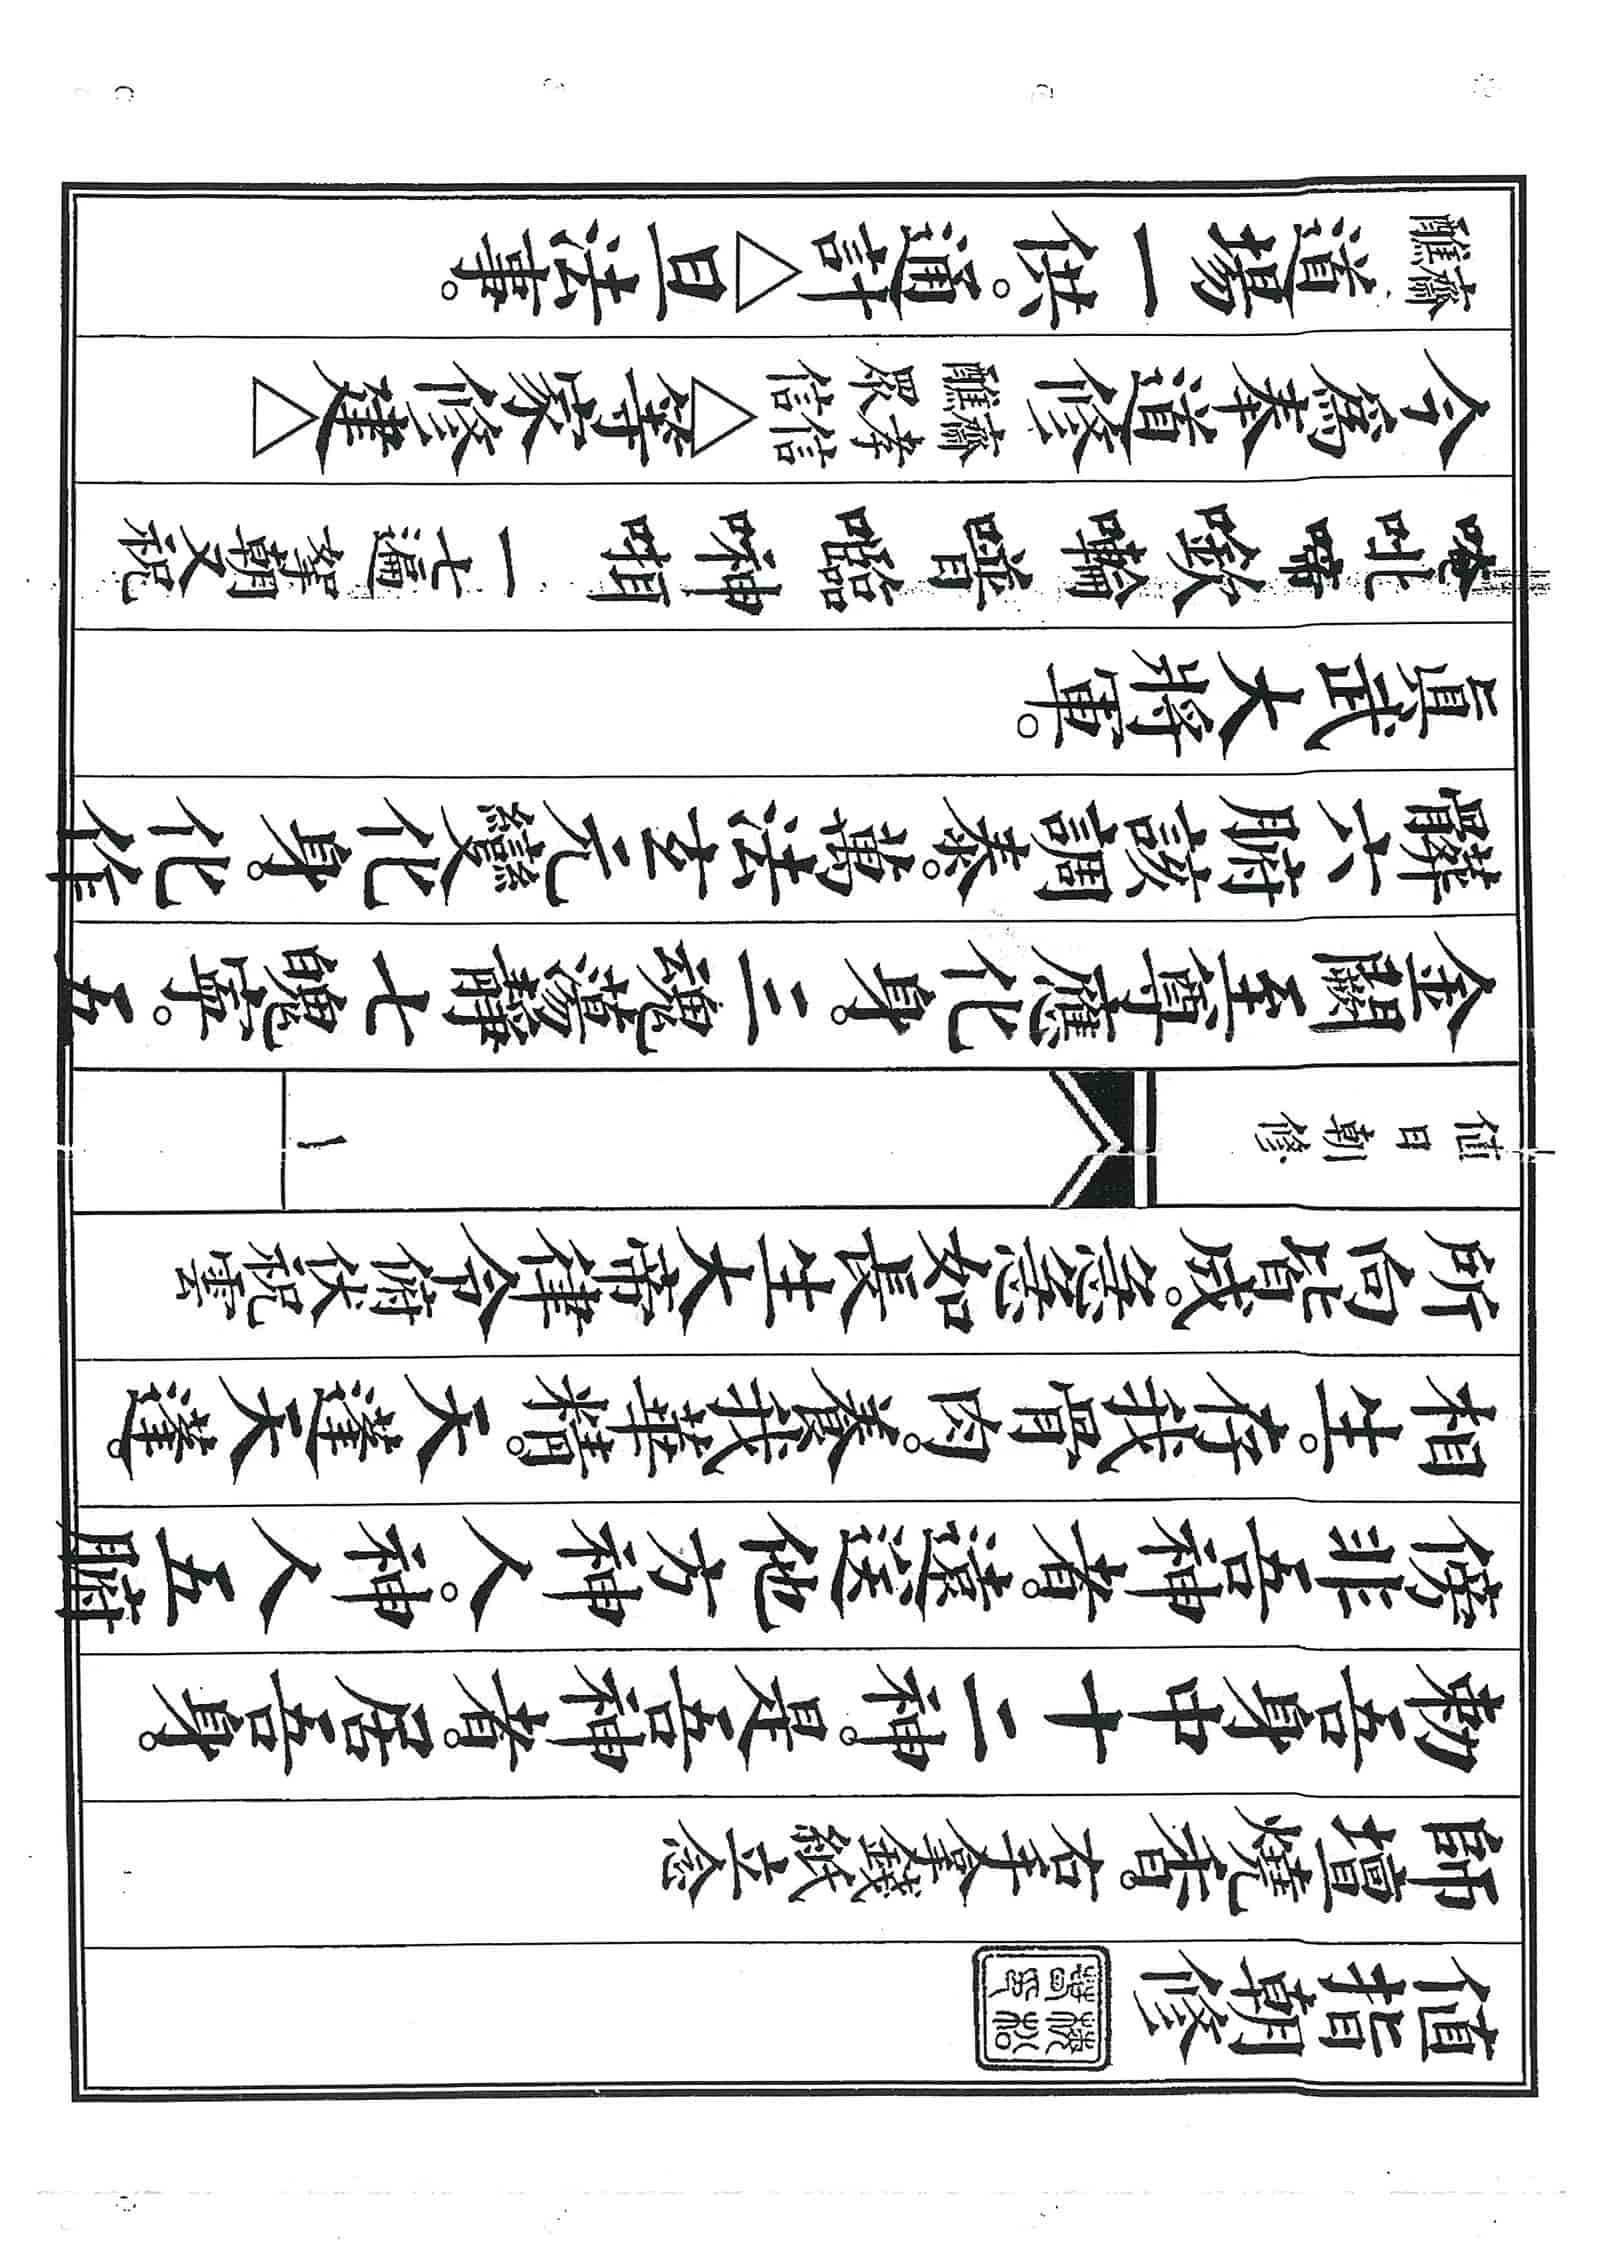 值指朝修
師壇燒香。右手拿錢紙立念
勅吾身中十二神。是吾神者。居吾身。
傍非吾神者。遠送他方神人。神人五腑
相生。存我骨肉。養我華精。天蓬天蓬。
所向皆成。急急如長生大帝律令俯伏祝雲
值日朝修 一
金闕至尊應化身。三魂蕩靜七魄寧。五
髒六腑該調泰。萬法玄元變化身。化作
眞武大將軍。
唵吡啼一七遍拏朝又祝
今爲奉道修齋醮孝信眾信△等家修建△
齋醮道場一供。通計△旦法事。